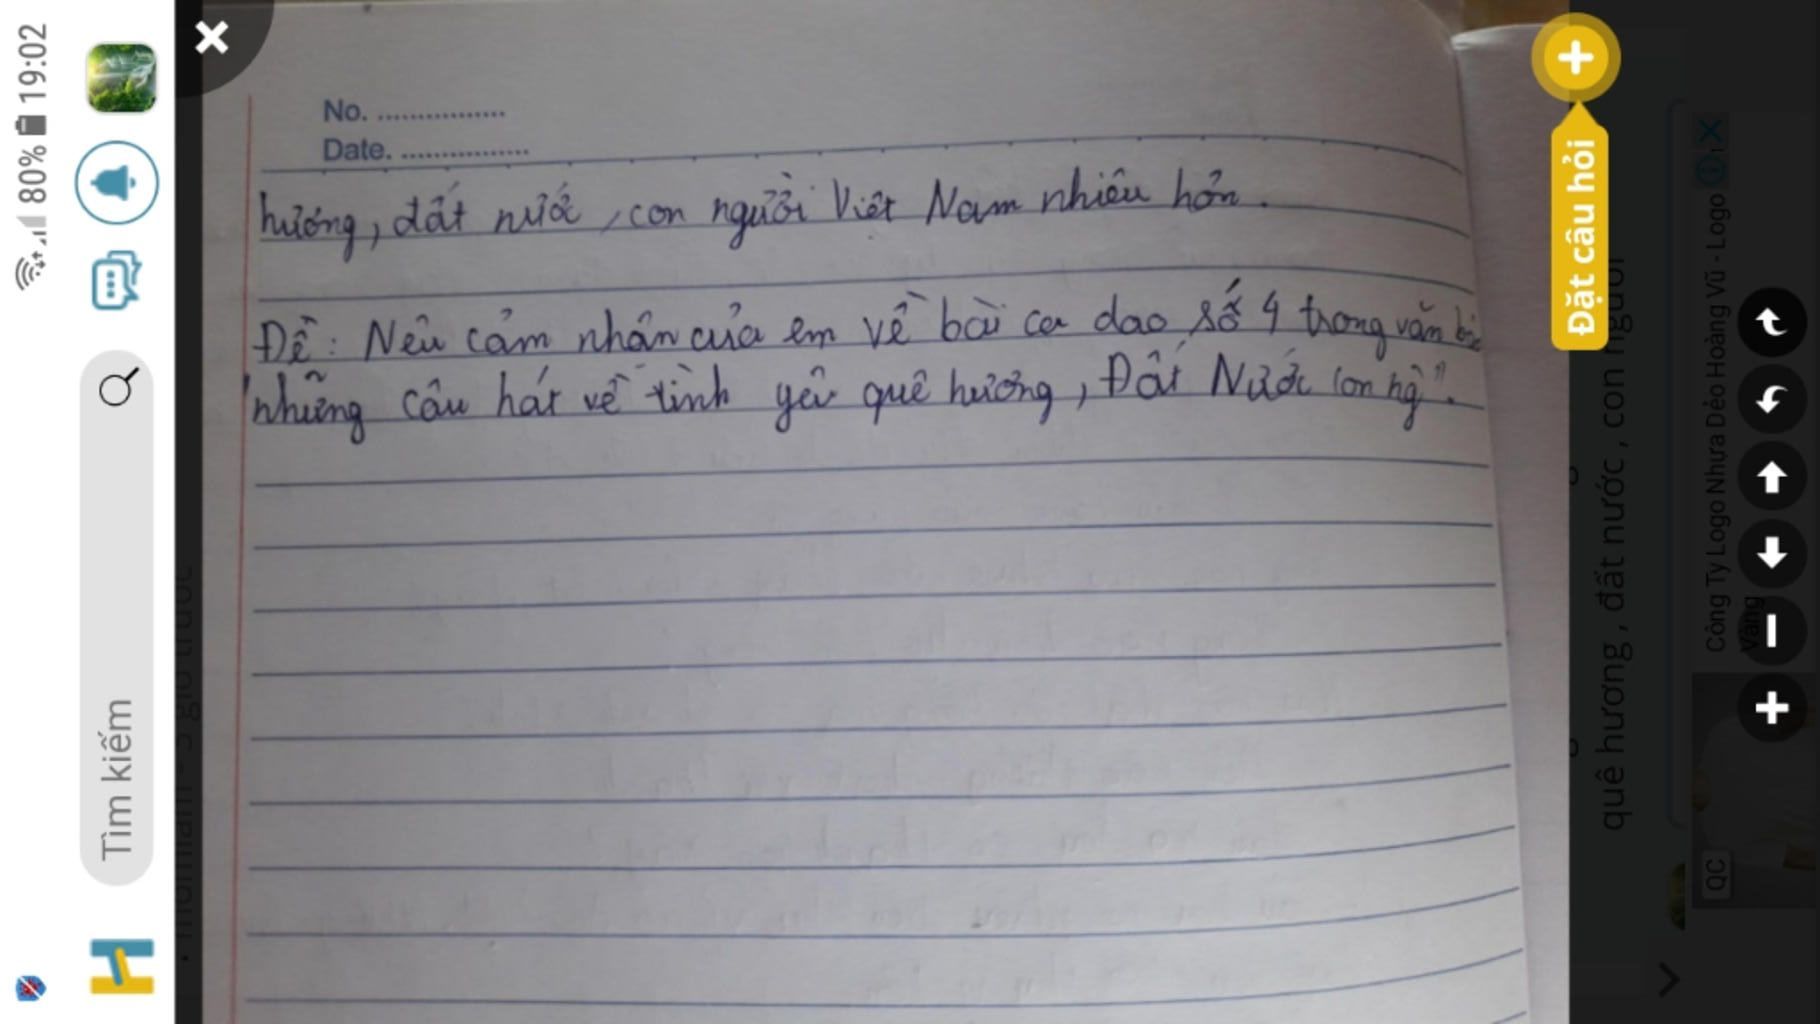 No. ................
Date. ................
hương, đất nước, con người Việt Nam nhiều hơn.
Đề: Nêu cảm nhận của em về bài ca dao số 4 trong văn
"những câu hát về tình yêu quê hương, Đất Nước con ng`".
19:02
80%
Tìm kiếm
Đặt câu hỏi
quê hương , đất nước , con người
Công Ty Logo Nhựa Dẻo Hoàng Vũ - Logo
Vàng
QC